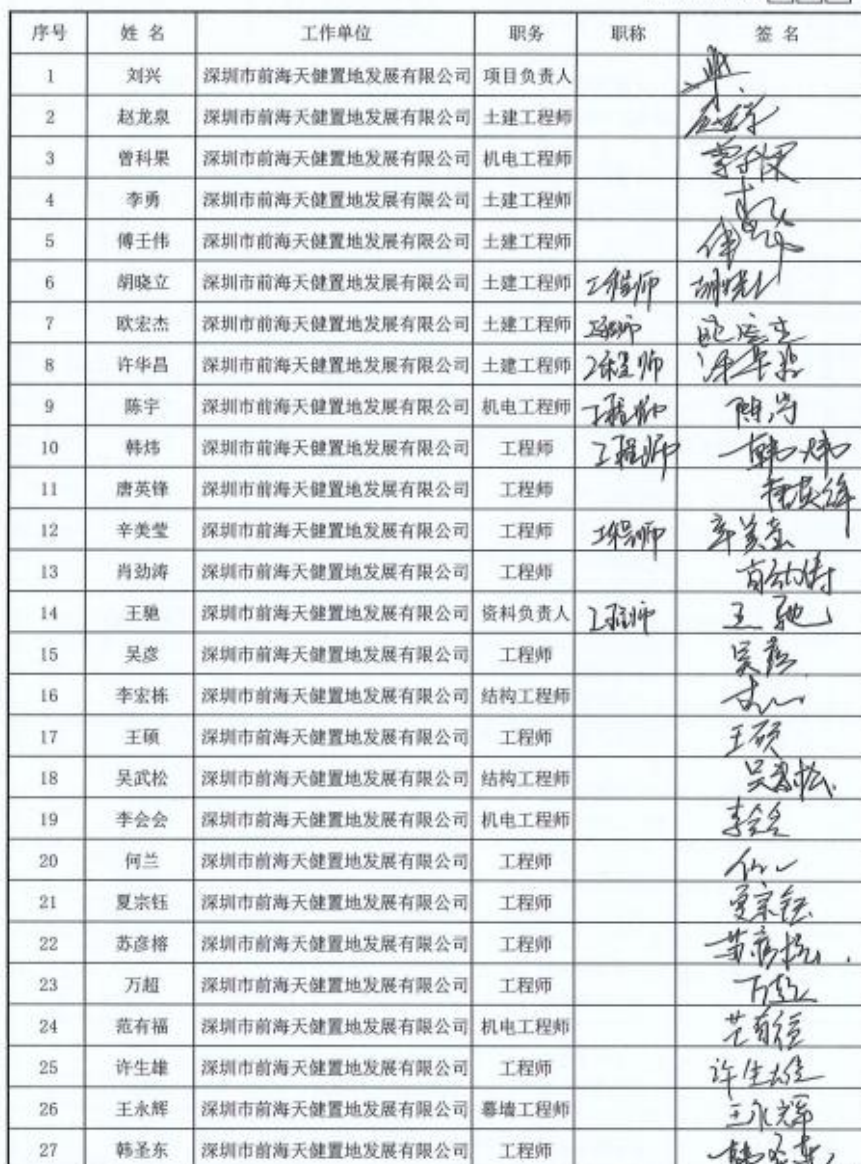 序号 姓名 工作单位 职务 职称 签名
1 刘兴 深圳市前海天健置地发展有限公司 项目负责人
2 赵龙泉 深圳市前海天健置地发展有限公司 土建工程师
3 曾科果 深圳市前海天健置地发展有限公司 机电工程师 曾科果
4 李勇 深圳市前海天健置地发展有限公司 土建工程师
5 傅壬伟 深圳市前海天健置地发展有限公司 土建工程师
6 胡晓立 深圳市前海天健置地发展有限公司 土建工程师 工程师 胡晓立
7 欧宏杰 深圳市前海天健置地发展有限公司 土建工程师 工程师 欧宏杰
8 许华昌 深圳市前海天健置地发展有限公司 土建工程师 工程师 许华昌
9 陈宇 深圳市前海天健置地发展有限公司 机电工程师 工程师 陈宇
10 韩炜 深圳市前海天健置地发展有限公司 工程师 工程师 韩炜
11 唐英锋 深圳市前海天健置地发展有限公司 工程师 唐英锋
12 辛美莹 深圳市前海天健置地发展有限公司 工程师 工程师 辛美莹
13 肖劲涛 深圳市前海天健置地发展有限公司 工程师 肖劲涛
14 王驰 深圳市前海天健置地发展有限公司 资料负责人 工程师 王驰
15 吴彦 深圳市前海天健置地发展有限公司 工程师 吴彦
16 李宏栋 深圳市前海天健置地发展有限公司 结构工程师
17 王硕 深圳市前海天健置地发展有限公司 工程师 王硕
18 吴武松 深圳市前海天健置地发展有限公司 结构工程师 吴武松
19 李会会 深圳市前海天健置地发展有限公司 机电工程师 李会会
20 何兰 深圳市前海天健置地发展有限公司 工程师
21 夏宗钰 深圳市前海天健置地发展有限公司 工程师 夏宗钰
22 苏彦榕 深圳市前海天健置地发展有限公司 工程师 苏彦榕
23 万超 深圳市前海天健置地发展有限公司 工程师 万超
24 范有福 深圳市前海天健置地发展有限公司 机电工程师 范有福
25 许生雄 深圳市前海天健置地发展有限公司 工程师 许生雄
26 王永辉 深圳市前海天健置地发展有限公司 幕墙工程师 王永辉
27 韩圣东 深圳市前海天健置地发展有限公司 工程师 韩圣东